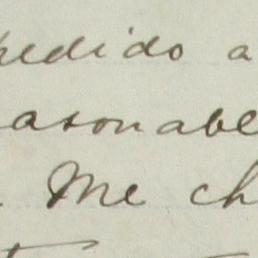 pedido a
easonable
. Me ch